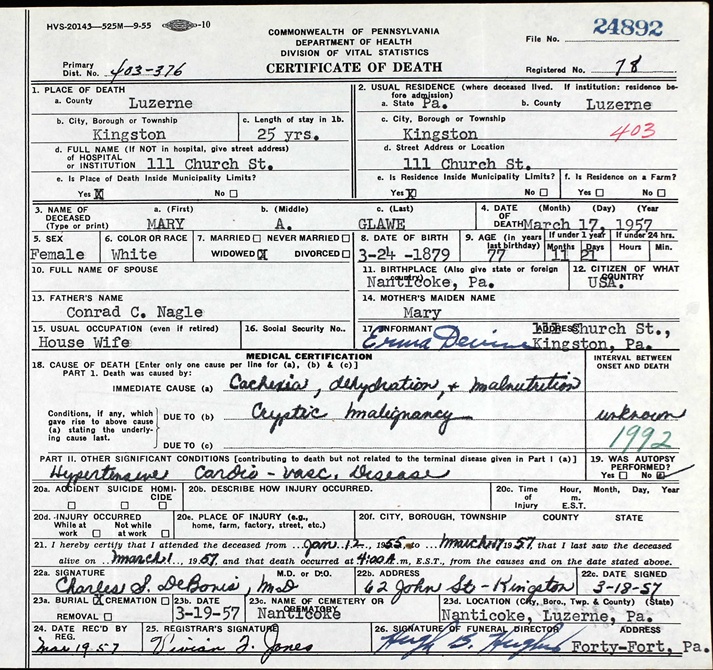 HVS-20143—525M—9-55 -10
COMMONWEALTH OF PENNSYLVANIA
DEPARTMENT OF HEALTH
DIVISION OF VITAL STATISTICS
CERTIFICATE OF DEATH
File No. 24892
Primary
Dist. No. 403-376
Registered No. 78
1. PLACE OF DEATH
a. County Luzerne
2. USUAL RESIDENCE (where deceased lived. If institution: residence be-
fore admission)
a. State Pa. b. County Luzerne
b. City, Borough or Township
Kingston
c. Length of stay in 1b.
25 yrs.
c. City, Borough or Township
Kingston 403
d. FULL NAME (If NOT in hospital, give street address)
of HOSPITAL
or INSTITUTION 111 Church St.
d. Street Address or Location
111 Church St.
e. Is Place of Death Inside Municipality Limits?
Yes X No
e. Is Residence Inside Municipality Limits?
Yes X No
f. Is Residence on a Farm?
Yes No
3. NAME OF
DECEASED
(Type or print)
a. (First) b. (Middle) c. (Last)
MARY A. GLAWE
4. DATE (Month) (Day) (Year
OF
DEATH March 17, 1957
5. SEX
Female
6. COLOR OR RACE
White
7. MARRIED NEVER MARRIED
WIDOWED X DIVORCED
8. DATE OF BIRTH
3-24 -1879
9. AGE (in years
last birthday)
77
If under 1 year
Months Days
11 21
If under 24 hrs.
Hours Min.
10. FULL NAME OF SPOUSE
11. BIRTHPLACE (Also give state or foreign
country)
Nanticoke, Pa.
12. CITIZEN OF WHAT
COUNTRY
USA.
13. FATHER'S NAME
Conrad C. Nagle
14. MOTHER'S MAIDEN NAME
Mary
15. USUAL OCCUPATION (even if retired)
House Wife
16. Social Security No..
17. INFORMANT ADDRESS
Erma Devine 111 Church St.,
Kingston, Pa.
MEDICAL CERTIFICATION
18. CAUSE OF DEATH [Enter only one cause per line for (a), (b) & (c)]
PART 1. Death was caused by:
INTERVAL BETWEEN
ONSET AND DEATH
IMMEDIATE CAUSE (a) Cachexia, dehydration, + malnutrition
Conditions, if any, which
gave rise to above cause
(a) stating the underly-
ing cause last.
DUE TO (b) Cryptic malignancy unknown
DUE TO (c) 1992
PART II. OTHER SIGNIFICANT CONDITIONS [contributing to death but not related to the terminal disease given in Part I (a)]
Hypertensive Cardio-vasc. Disease
19. WAS AUTOPSY
PERFORMED?
Yes No
20a. ACCIDENT SUICIDE HOMI-
CIDE
20b. DESCRIBE HOW INJURY OCCURRED.
20c. Time Hour, Month, Day, Year
of m.
Injury E.S.T.
20d. INJURY OCCURRED
While at Not while
work at work
20e. PLACE OF INJURY (e.g.,
home, farm, factory, street, etc.)
20f. CITY, BOROUGH, TOWNSHIP COUNTY STATE
21. I hereby certify that I attended the deceased from Jan 12, 1955, to March 17 1957, that I last saw the deceased
alive on March 1, 1957, and that death occurred at 4:00 A.m, E.S.T., from the causes and on the date stated above.
22a. SIGNATURE M.D. or D.O.
Charles S. DeBonis, M.D
22b. ADDRESS
62 John St - Kingston
22c. DATE SIGNED
3-18-57
23a. BURIAL X CREMATION
REMOVAL
23b. DATE
3-19-57
23c. NAME OF CEMETERY OR
CREMATORY
Nanticoke
23d. LOCATION (City, Boro., Twp. & County) (State)
Nanticoke, Luzerne, Pa.
24. DATE REC'D BY
REG.
Mar 19 57
25. REGISTRAR'S SIGNATURE
Vivian J. Jones
26. SIGNATURE OF FUNERAL DIRECTOR ADDRESS
Hugh B. Hughes Forty-Fort, Pa.